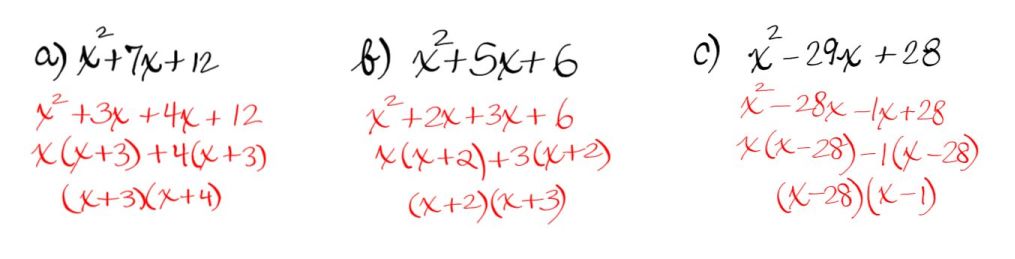 a) x²+7x+12
x²+3x+4x+12
x(x+3)+4(x+3)
(x+3)(x+4)
b) x²+5x+6
x²+2x+3x+6
x(x+2)+3(x+2)
(x+2)(x+3)
c) x²-29x+28
x²-28x-1x+28
x(x-28)-1(x-28)
(x-28)(x-1)